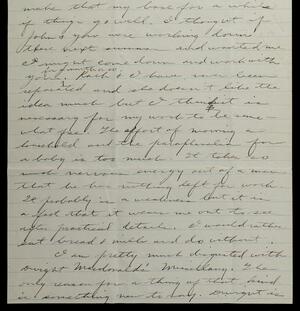 make that my base for a while
if things go well. I thought if
John & you were working down
there next summer and wanted me
I might come down and work with
you for a month or so. Ruth & I have never been
separated and she doesn't like the
idea much but I think it is
necessary for my work to be some-
what free. The effort of moving a
household and the paraphernalia for
a baby is too much. It takes so
much nervous energy out of a man
that he has nothing left for work.
It probably is a weakness but it is
a fact that it wears me out to see
after practical details. I would rather
eat bread & milk and do without.
I am pretty much disgusted with
Dwight Macdonald's Miscellany. The
only reason for a thing of that kind
is something new to say. Dwight is